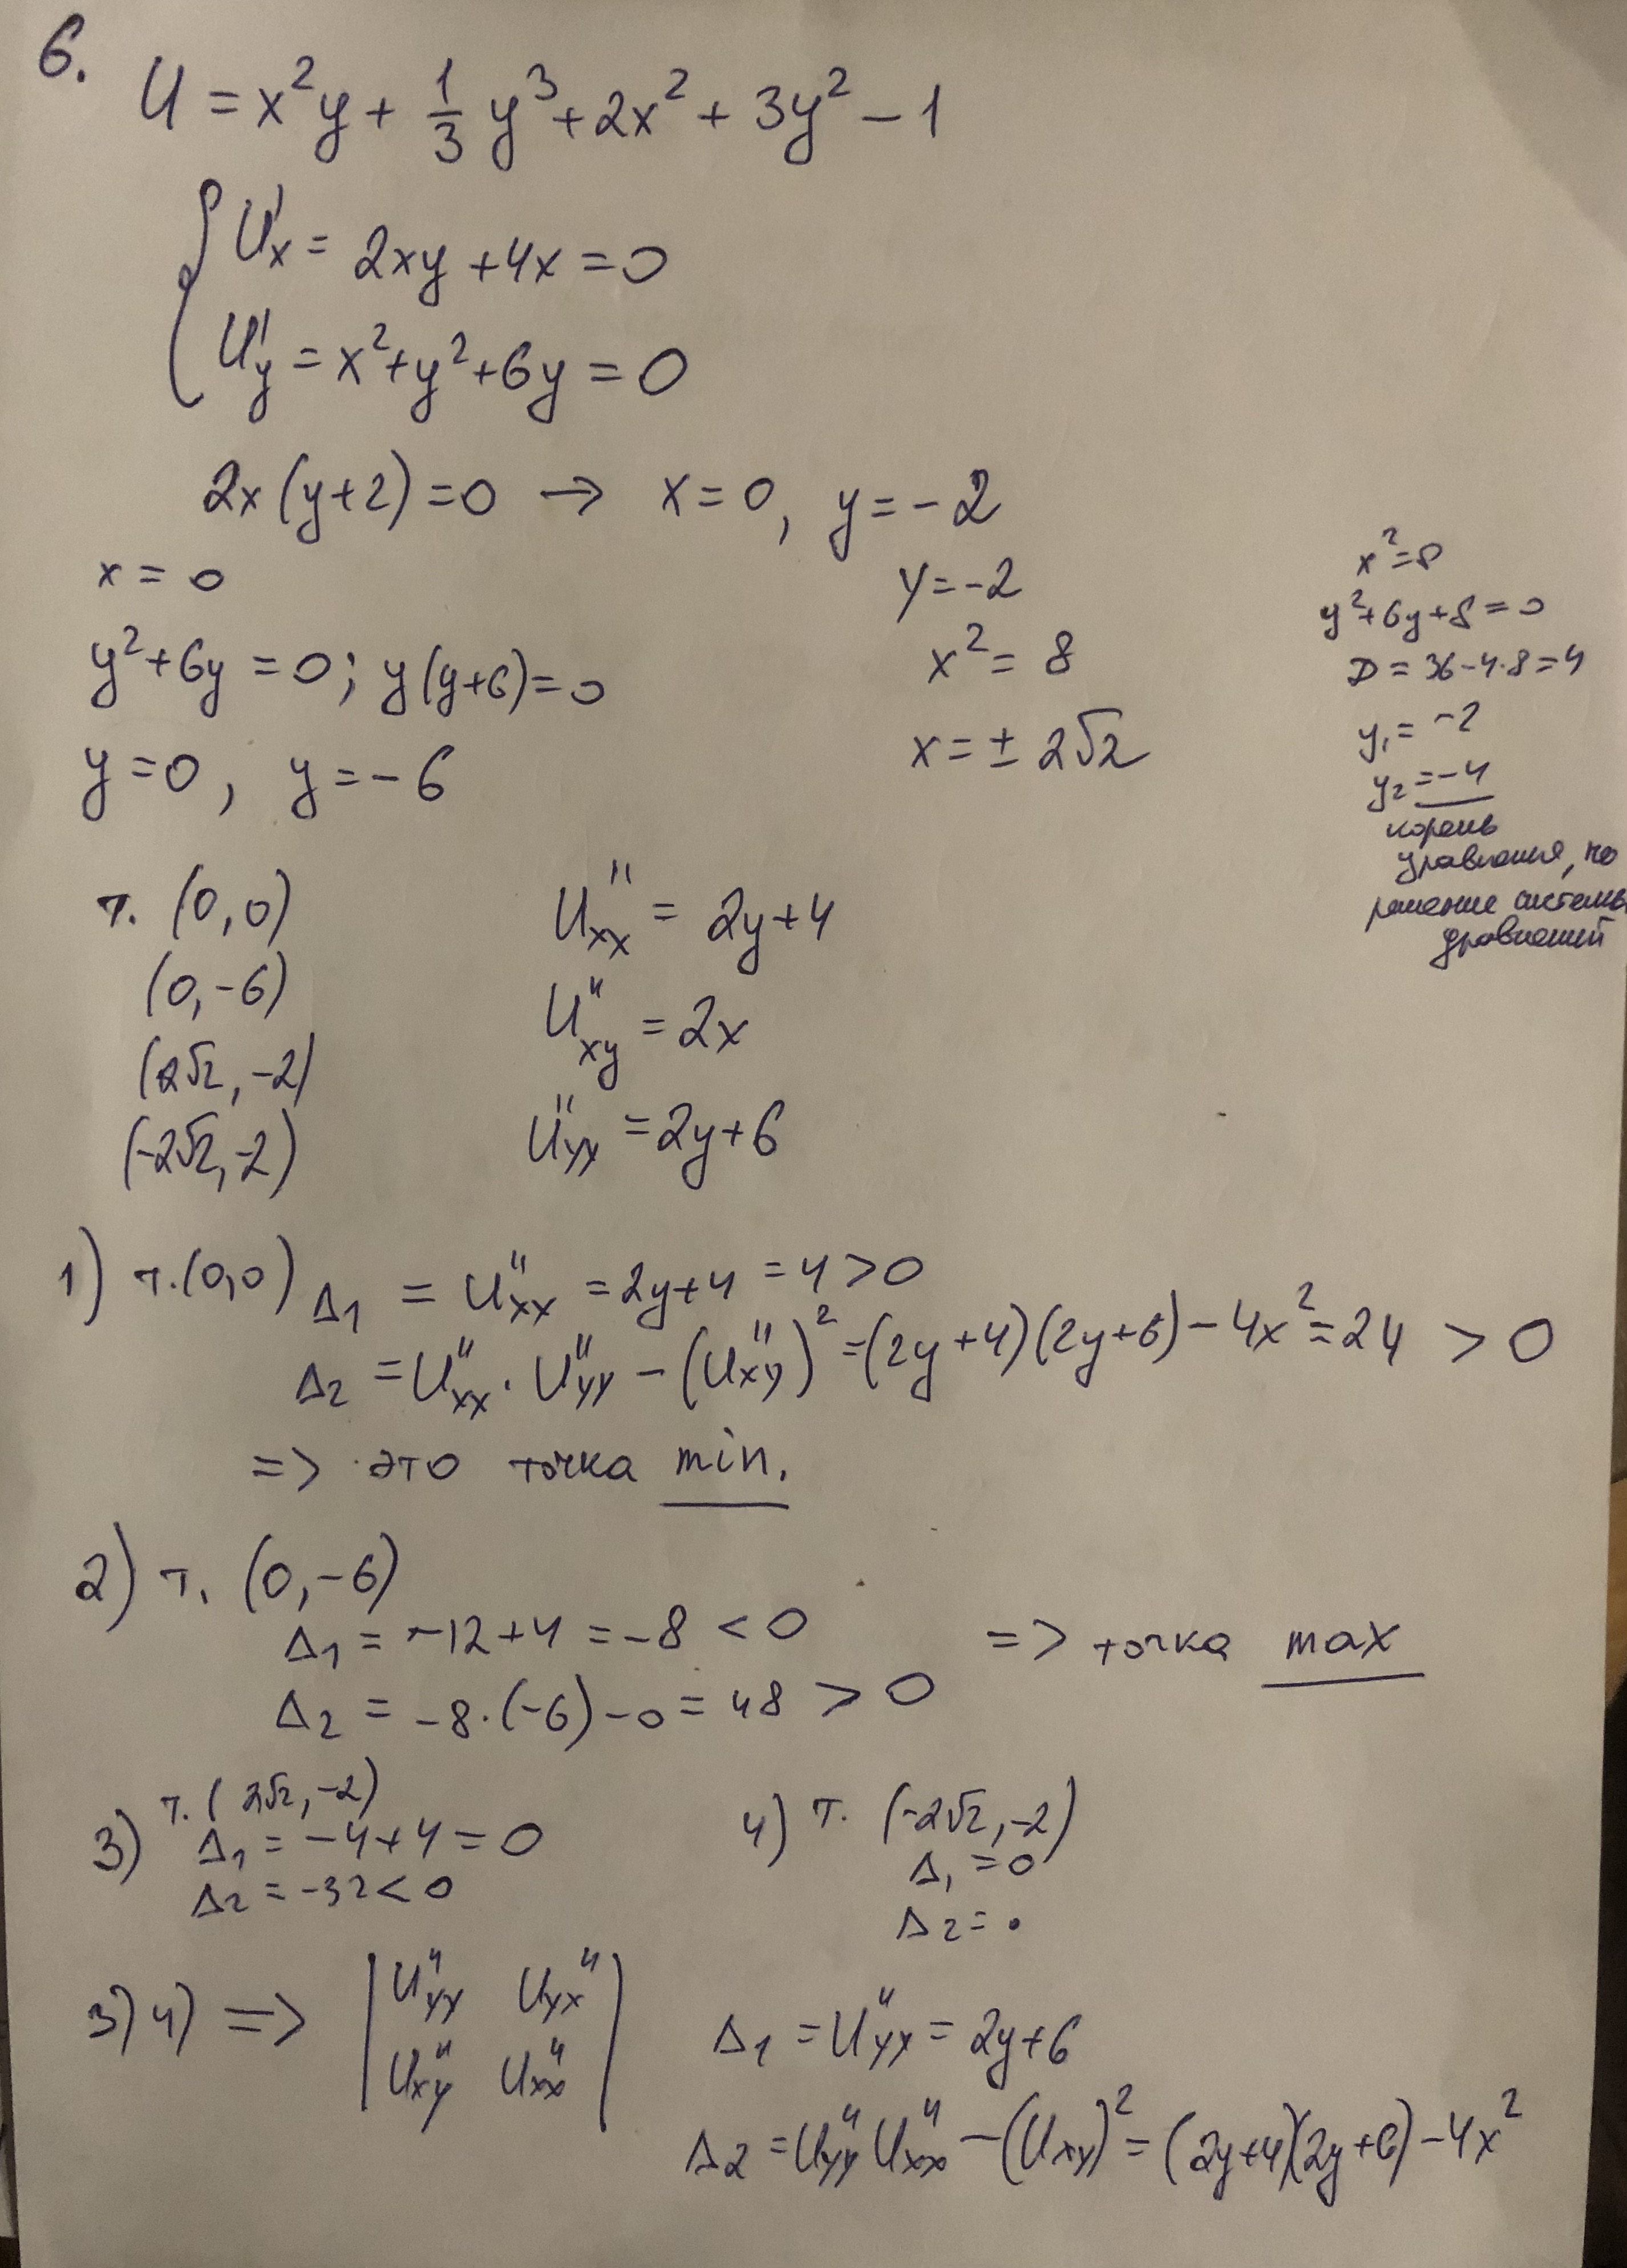 6.
U = x²y + 1/3 y³ + 2x² + 3y² − 1
{ U'x = 2xy + 4x = 0
U'y = x² + y² + 6y = 0
2x(y+2) = 0 → x = 0, y = −2
x = 0
y² + 6y = 0; y(y+6) = 0
y = 0, y = −6
y = −2
x² = 8
x = ± 2√2
x² = 8
y² + 6y + 8 = 0
D = 36 − 4·8 = 4
y₁ = −2
y₂ = −4
корень
уравнения, но
решение системы
уравнений
т. (0, 0)
(0, −6)
(2√2, −2)
(−2√2, −2)
U''xx = 2y + 4
U''xy = 2x
U''yy = 2y + 6
1) т. (0,0) Δ₁ = U''xx = 2y + 4 = 4 > 0
Δ₂ = U''xx · U''yy − (U''xy)² = (2y + 4)(2y + 6) − 4x² = 24 > 0
=> это точка min.
2) т. (0, −6)
Δ₁ = −12 + 4 = −8 < 0
Δ₂ = −8·(−6) − 0 = 48 > 0
=> точка max
3) т. (2√2, −2)
Δ₁ = −4 + 4 = 0
Δ₂ = −32 < 0
4) т. (−2√2, −2)
Δ₁ = 0
Δ₂ = •
3) 4) => | U''yy U''yx |
| U''xy U''xx |
Δ₁ = U''yy = 2y + 6
Δ₂ = U''yy U''xx − (Uxy)² = (2y+4)(2y+6) − 4x²